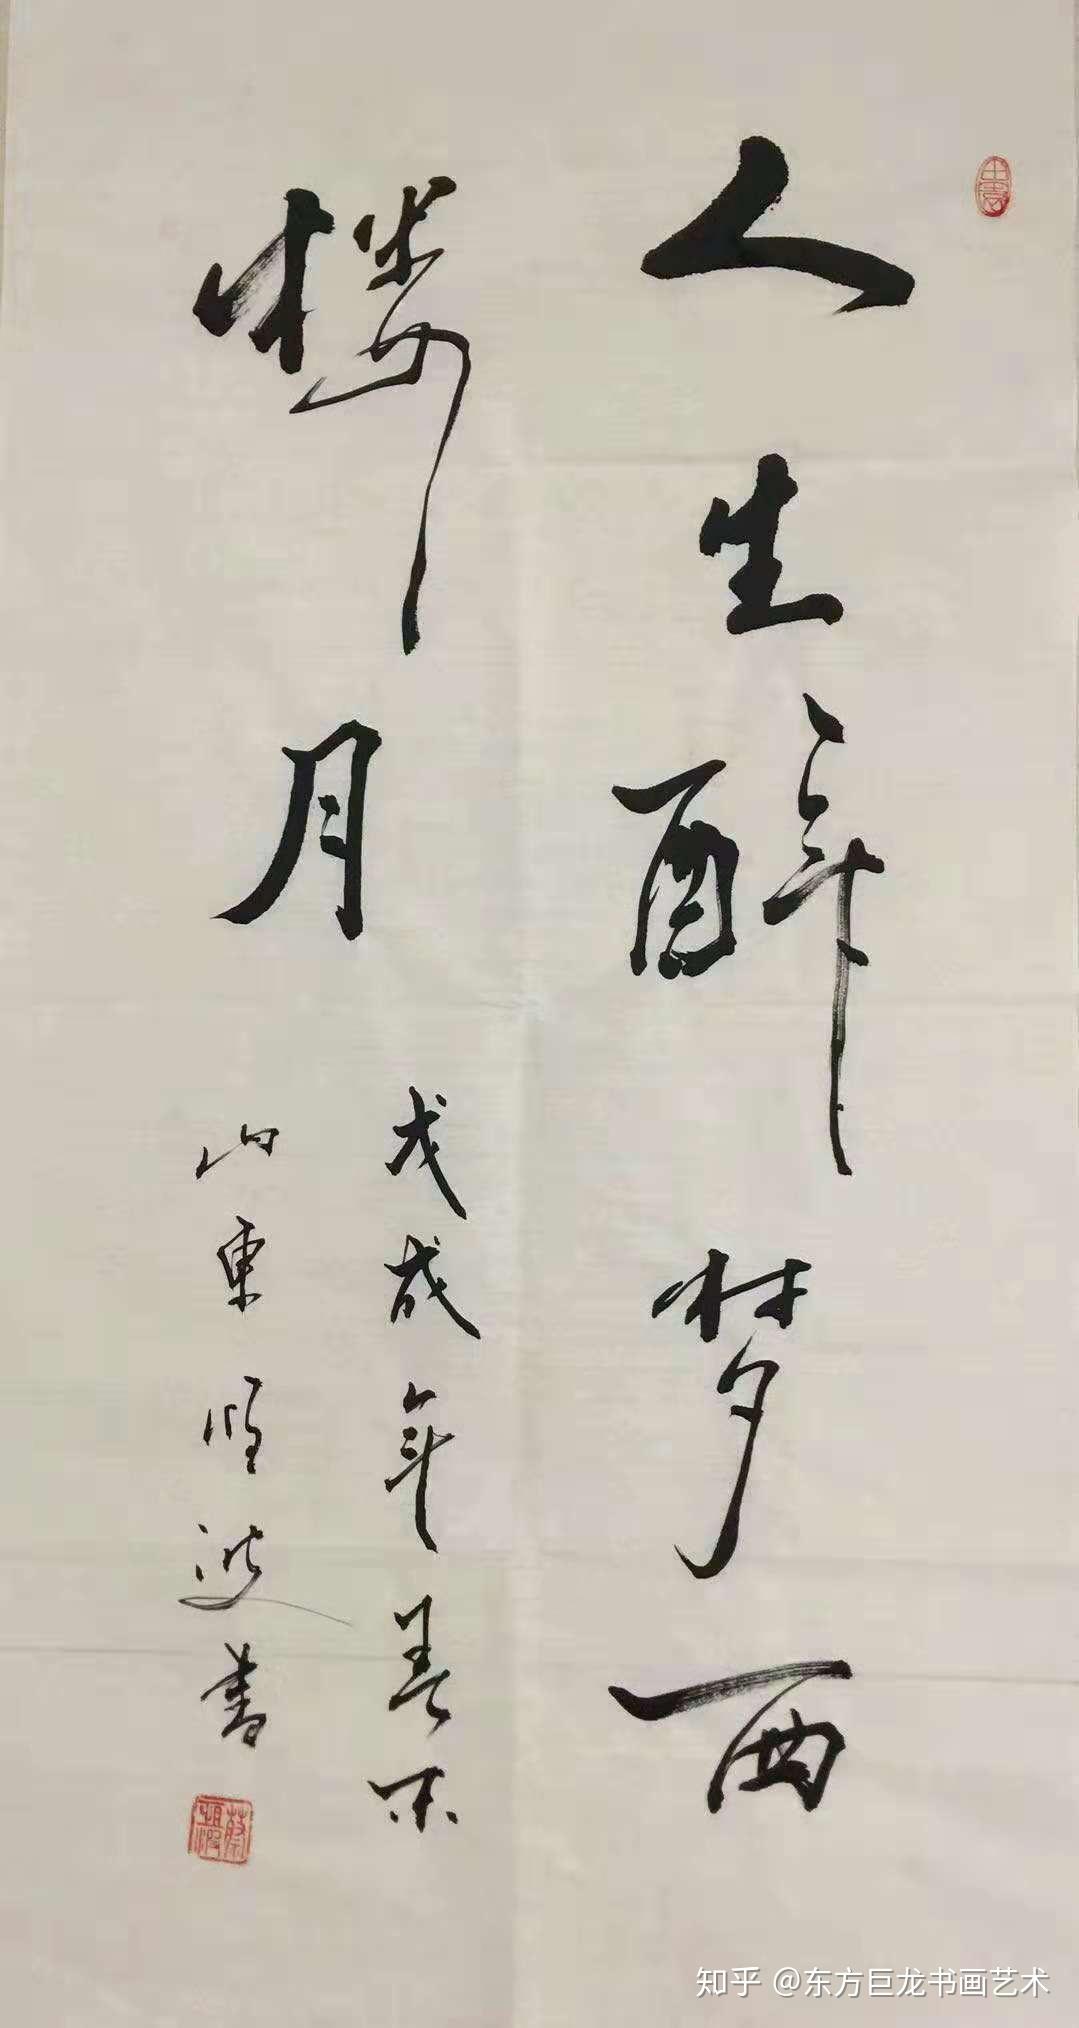 人生醉梦西
楼月
戊戌年春
山東 波書
知乎 @东方巨龙书画艺术